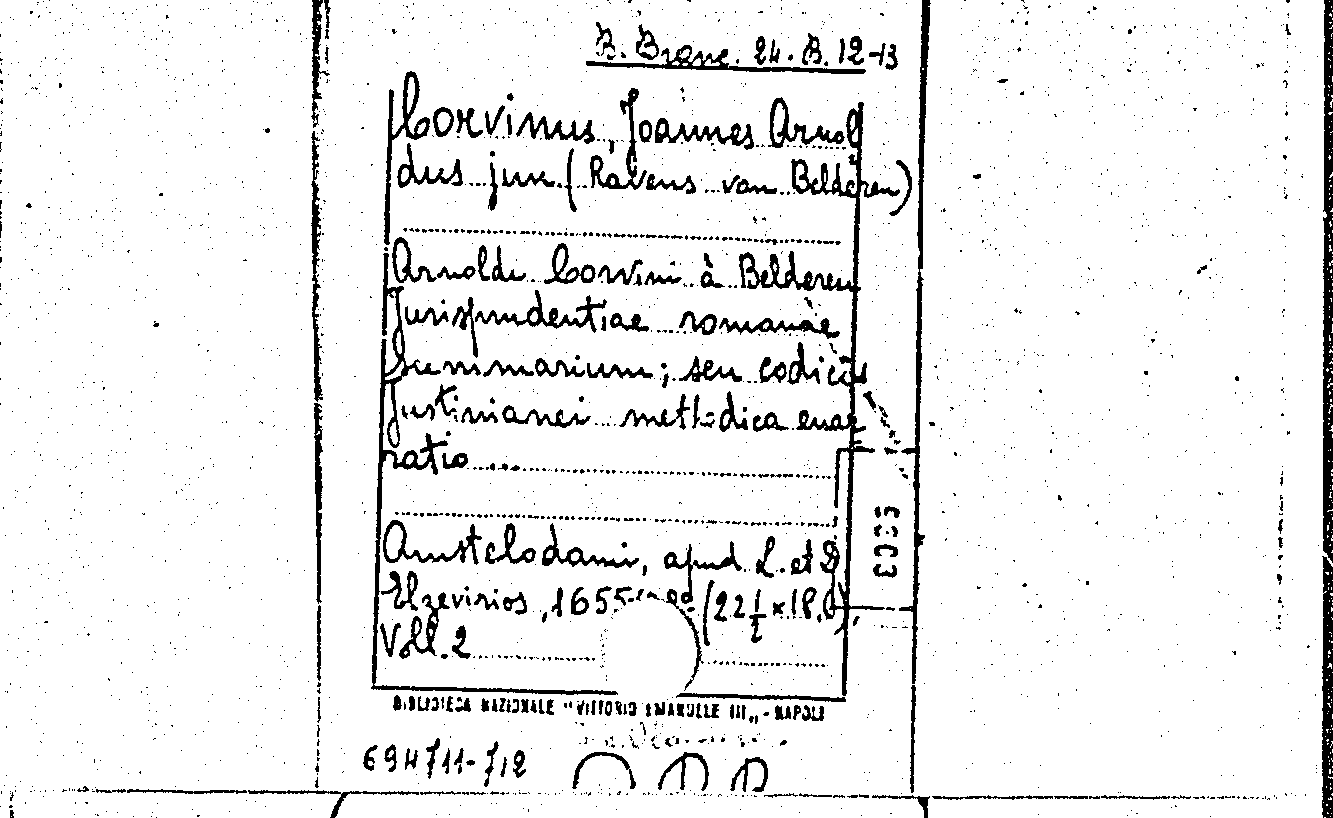 B. Branc. 24. B. 12-13
Corvinus, Joannes Arnol
dus jun (Ravens van Belderen)
Arnoldi Corvini à Belderen
Jurisprudentiae romanae
Summarium; seu codicis
Justinianei methodica enar
ratio ...
Amstelodami, apud L. et D
Elzevirios, 1655 (22 1/2 x 18,
Voll. 2
BIBLIOTECA NAZIONALE "VITTORIO EMANUELE III„ - NAPOLI
694711-712